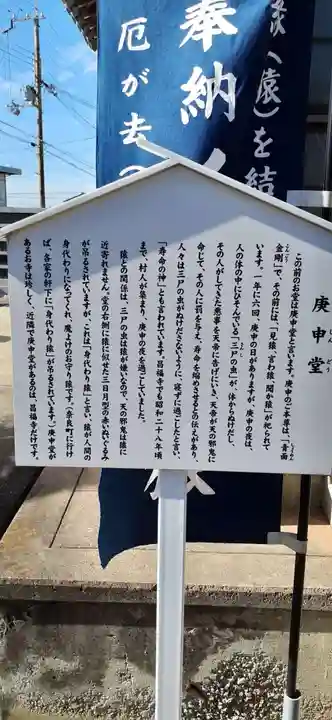 奉納
厄が去
猿(遠)を結
庚申堂
こんごう
しょうめん
さんし
この前のお堂は庚申堂といいます。庚申のご本尊は、「青面
金剛」で、その前には、「見猿・言わ猿・聞か猿」が祀られて
います。一年に六回、庚申の日がありますが、庚申の夜は、
人の体の中にひそんでいる「三尸の虫」が、体からぬけだし、
その人がしてきた悪事を天帝に告げにいき、天帝が天の邪鬼に
命じて、その人に罰を与え、寿命を縮めさせるとの伝えがあり、
人々は三尸の虫がぬけださないように「寝ずに過ごした」と言い、
「寿命の神」とも言われています。昌福寺でも昭和二十八年頃
まで、村人が集まり、庚申の夜を過ごしていました。
猿との関係は、三尸の虫は猿が嫌いなので、天の邪鬼は猿に
近寄れません。堂の右側に猿に似せた三日月型の赤いぬいぐるみ
が吊るされていますが、これは「身代わり猿」と言い、猿が人間の
身代わりになってくれ、魔よけのお守り猿です。(奈良町に行け
ば、各家の軒下に「身代わり猿」が吊るされています。)庚申堂が
あるお寺は珍しく、近隣で庚申堂があるのは、昌福寺だけです。